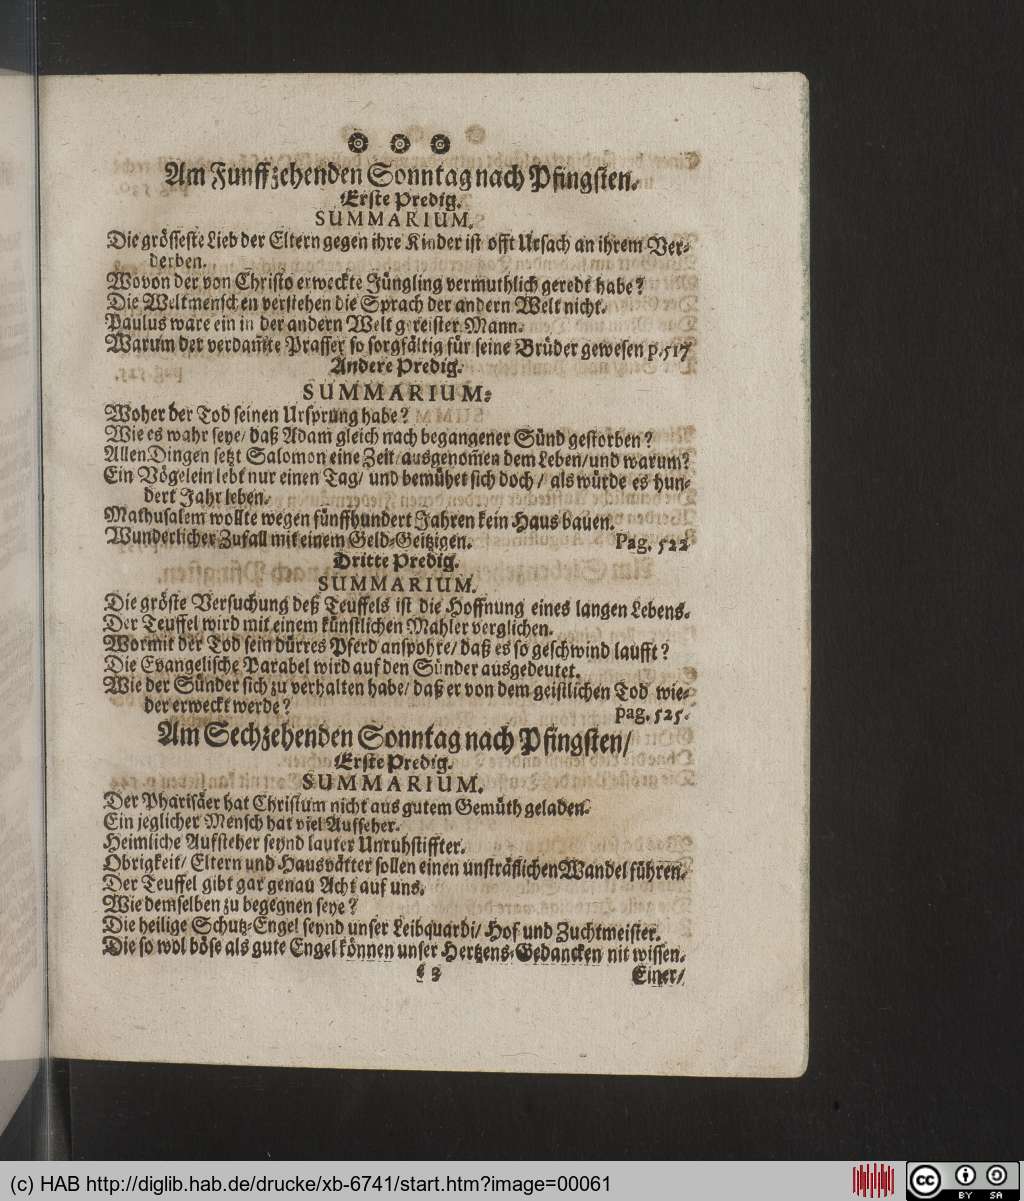 Am Funffzehenden Sonntag nach Pfingsten.
Erste Predig.
SUMMARIUM.
Die grösseste Lieb der Eltern gegen ihre Kinder ist offt Ursach an ihrem Ver-
derben.
Wovon der von Christo erweckte Jüngling vermuthlich geredt habe?
Die Weltmenschen verstehen die Sprach der andern Welt nicht.
Paulus ware ein in der andern Welt gereister Mann.
Warum der verdam̃te Prasser so sorgfältig für seine Brüder gewesen p.517
Andere Predig.
SUMMARIUM:
Woher der Tod seinen Ursprung habe?
Wie es wahr seye/ daß Adam gleich nach begangener Sünd gestorben?
Allen Dingen setzt Salomon eine Zeit/ ausgenom̃en dem Leben/ und warum?
Ein Vögelein lebt nur einen Tag/ und bemühet sich doch/ als würde es hun-
dert Jahr leben.
Mathusalem wollte wegen fünffhundert Jahren kein Haus bauen.
Wunderlicher Zufall mit einem Geld-Geitzigen. Pag. 522
Dritte Predig.
SUMMARIUM.
Die gröste Versuchung deß Teuffels ist die Hoffnung eines langen Lebens.
Der Teuffel wird mit einem künstlichen Mahler verglichen.
Wormit der Tod sein dürres Pferd anspohre/ daß es so geschwind laufft?
Die Evangelische Parabel wird auf den Sünder ausgedeutet.
Wie der Sünder sich zu verhalten habe/ daß er von dem geistlichen Tod wie-
der erweckt werde? pag. 525.
Am Sechzehenden Sonntag nach Pfingsten/
Erste Predig.
SUMMARIUM.
Der Pharisäer hat Christum nicht aus gutem Gemüth geladen.
Ein jeglicher Mensch hat viel Aufseher.
Heimliche Aufsteher seynd lauter Unruhstiffter.
Obrigkeit/ Eltern und Hausvätter sollen einen unsträflichen Wandel führen.
Der Teuffel gibt gar genau Acht auf uns.
Wie demselben zu begegnen seye?
Die heilige Schutz-Engel seynd unser Leibquardi/ Hof und Zuchtmeister.
Die so wol böse als gute Engel können unser Hertzens-Gedancken nit wissen.
3 Einer/
(c) HAB http://diglib.hab.de/drucke/xb-6741/start.htm?image=00061
cc BY SA